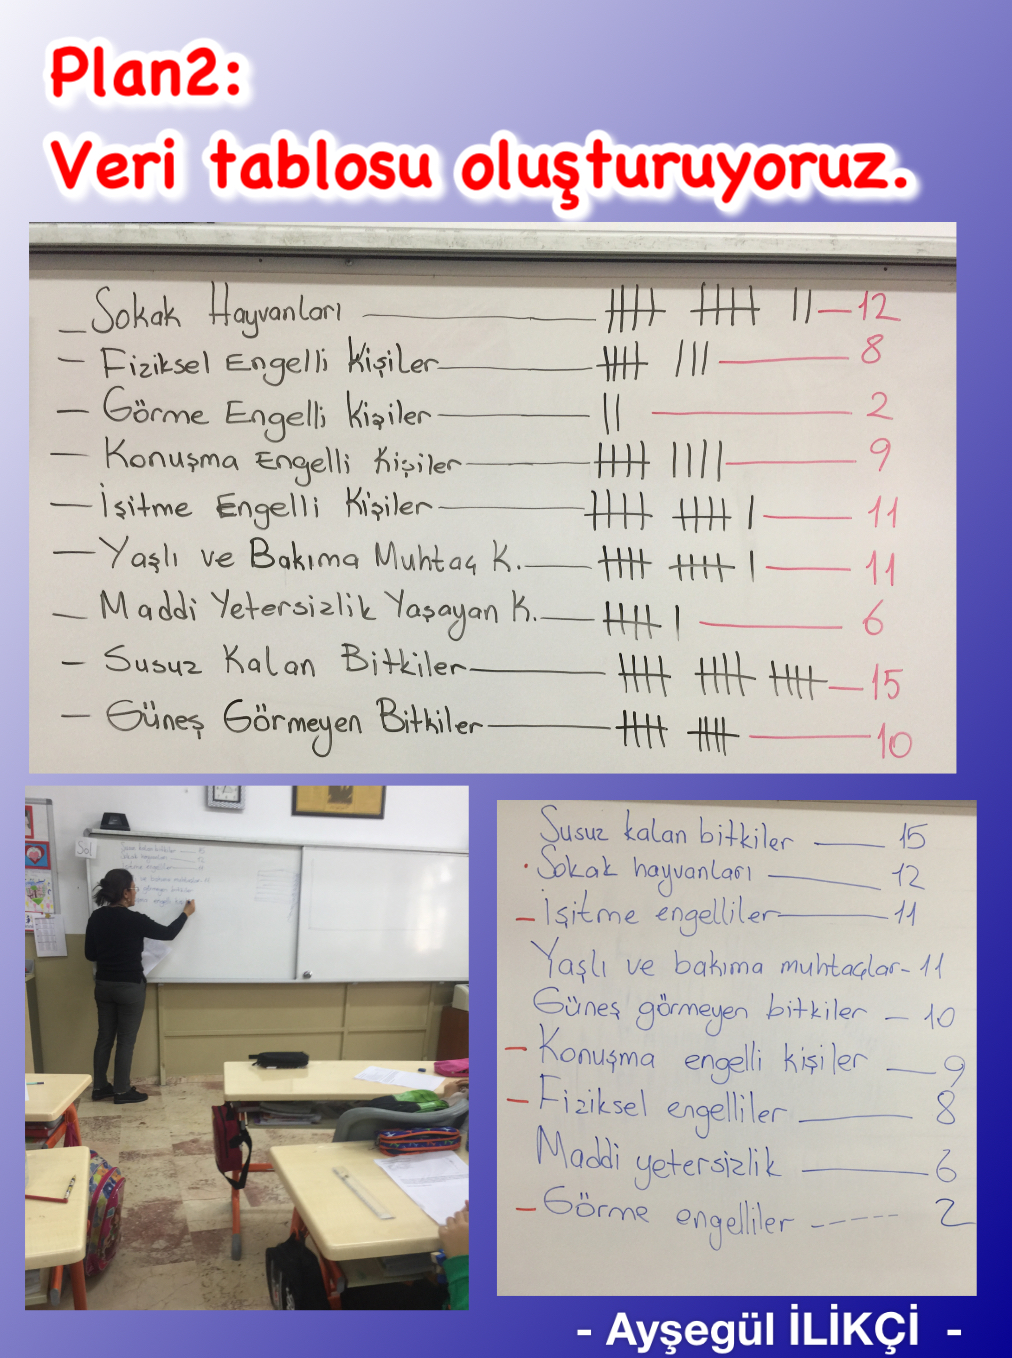 Plan2:
Veri tablosu oluşturuyoruz.
- Sokak Hayvanları — 12
- Fiziksel Engelli Kişiler — 8
- Görme Engelli Kişiler — 2
- Konuşma Engelli Kişiler — 9
- İşitme Engelli Kişiler — 11
- Yaşlı ve Bakıma Muhtaç K. — 11
- Maddi Yetersizlik Yaşayan K. — 6
- Susuz Kalan Bitkiler — 15
- Güneş Görmeyen Bitkiler — 10
Sol
Susuz kalan bitkiler — 15
Sokak hayvanları — 12
- İşitme engelliler — 11
Yaşlı ve bakıma muhtaçlar - 11
Güneş görmeyen bitkiler — 10
- Konuşma engelli kişiler — 9
- Fiziksel engelliler — 8
Maddi yetersizlik — 6
- Görme engelliler ---- 2
- Ayşegül İLİKÇİ -